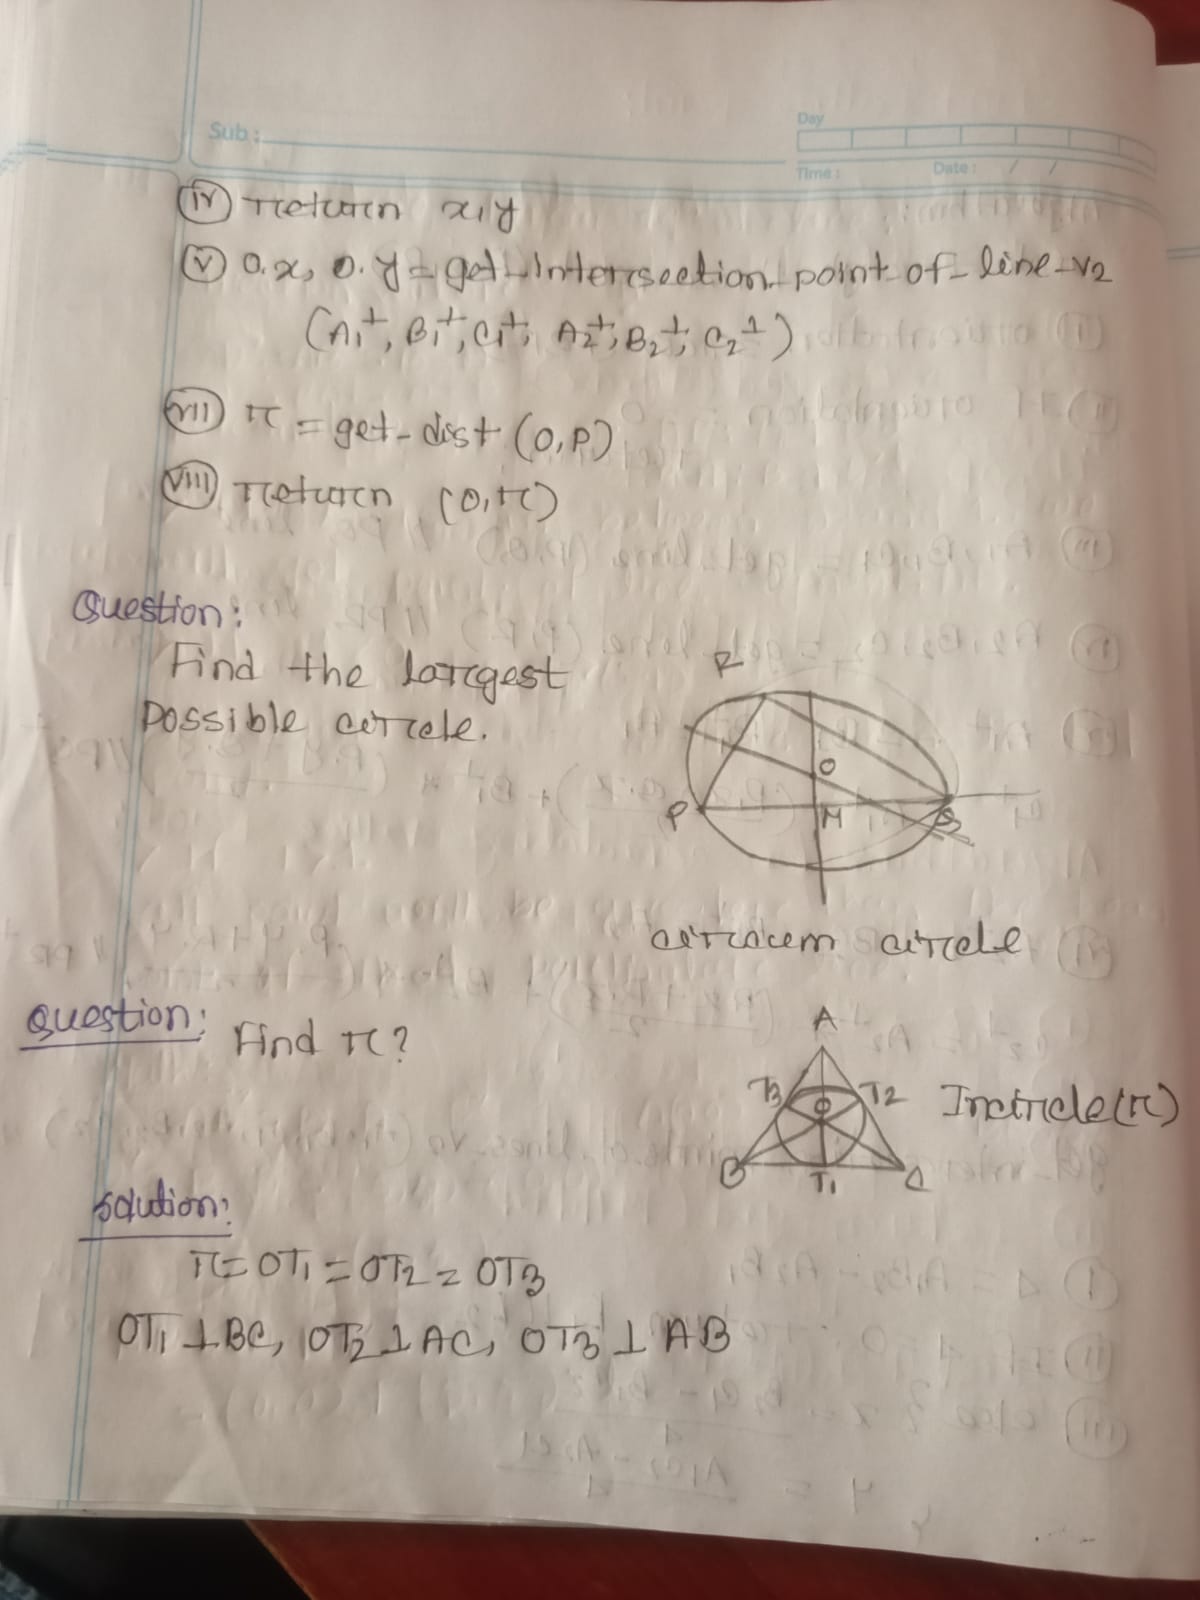 Sub :
Day
Time :
Date : / /
(iv) return x,y
(v) O.x, O.y = get-intersection-point-of-line-v2
(A1⊥, B1⊥, C1⊥, A2⊥, B2⊥, C2⊥)
(vii) r = get-dist (O,P)
(viii) return (O,r)
Question:
Find the largest
possible circle.
R
O
P
M
Q
circum circle
Question: Find r?
A
T3
T2
O
Incircle(r)
B
T1
C
Solution:
r = OT1 = OT2 = OT3
OT1 ⊥ BC, OT2 ⊥ AC, OT3 ⊥ AB